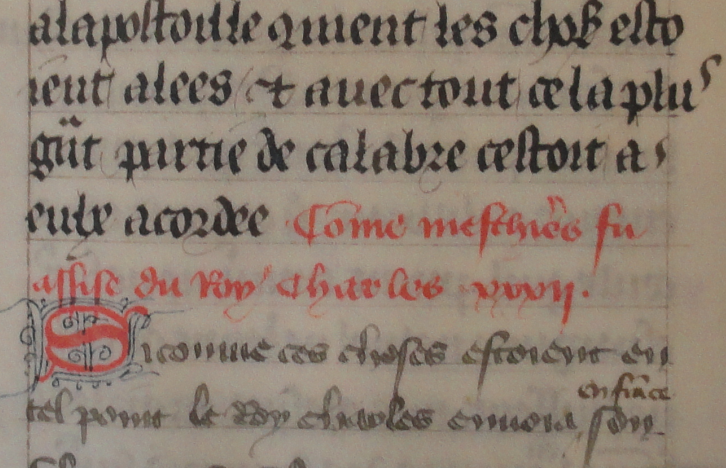 alapostoille quient les chos esto
ient alees et auec tout ce la plus
gnt partie de calabre cestoit a
eulx acordee Come meschies fu
assise du Roy Charles xxxii.
Si comme ces choses estoient en
tel point le Roy charles enuoia en france son